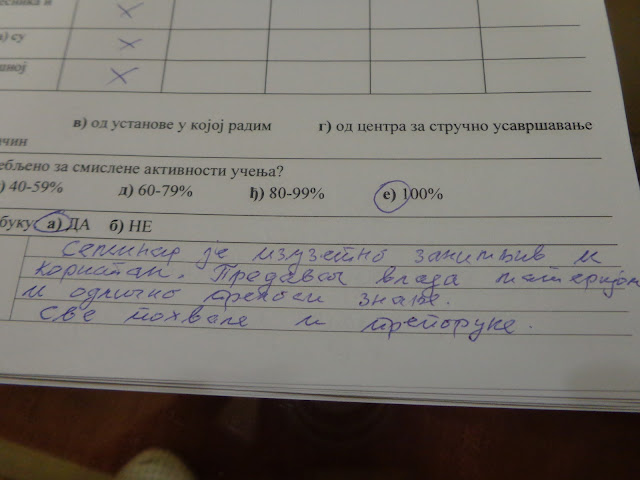 и
) су
ној
в) од установе у којој радим г) од центра за стручно усавршавање
чин
ебљено за смислене активности учења?
) 40-59% д) 60-79% ђ) 80-99% е) 100%
буку а) ДА б) НЕ
Семинар је изузетно занимљив и
користан. Предавач влада материјом
и одлично преноси знање.
Све похвале и препоруке.